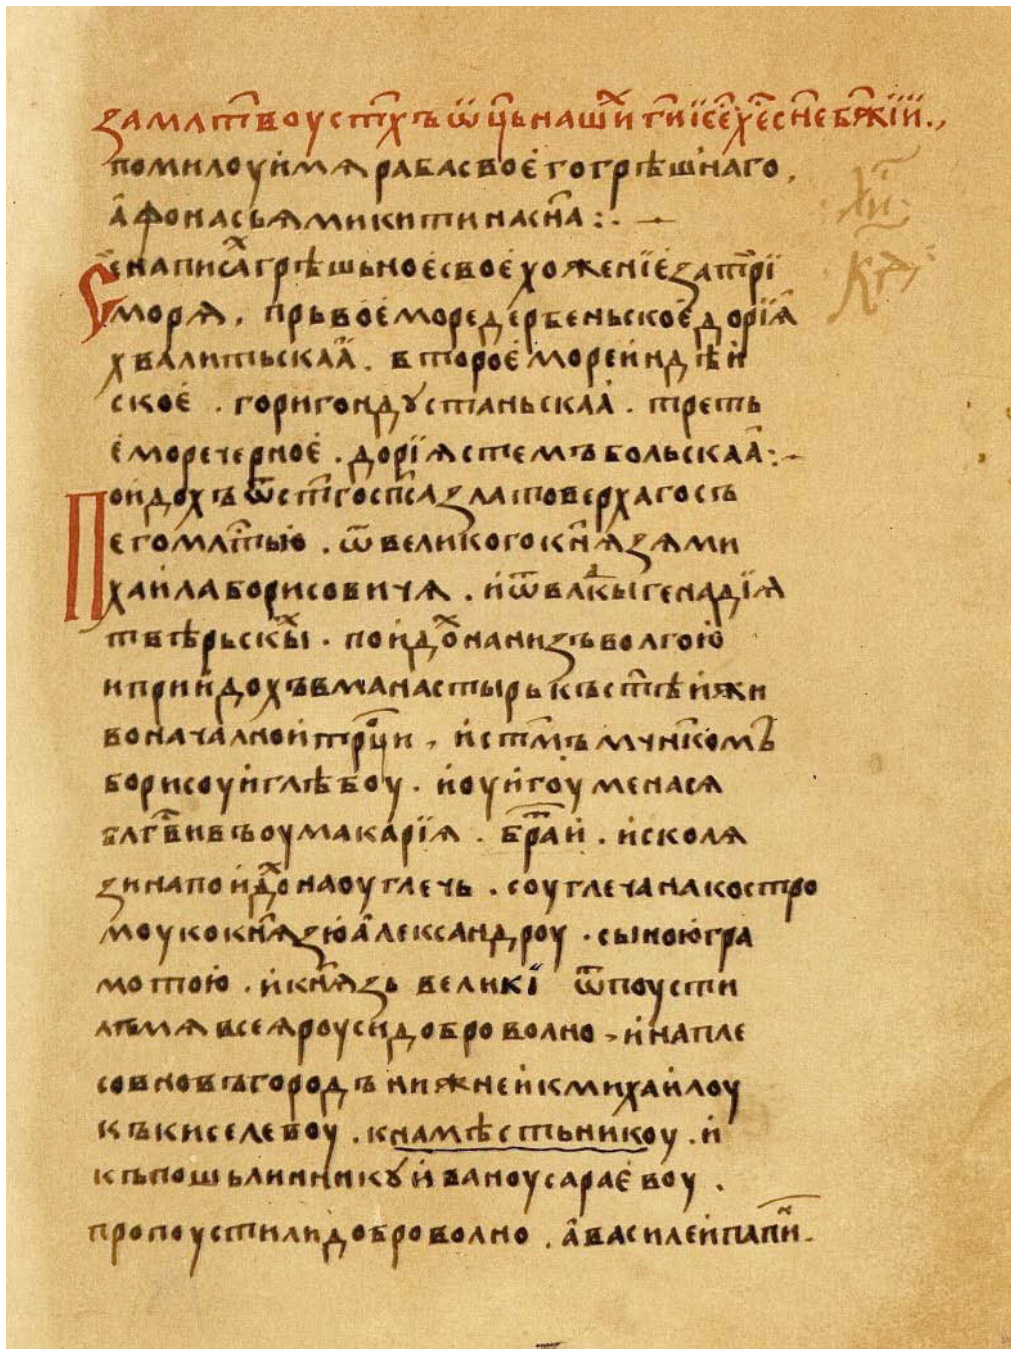 замлт҃воустх҃ъѿц҃ьнаши҃гиісе҃хе҃сн҃ебж҃їи.,
помилоуимѧрабасвоегогрѣшнаго,
афонасьѧмикитинасн҃а:.—
Сенаписахгрѣшьноесвоехоженїезатрї
морѧ, прьвоеморедербеньскоедорїѧ
хвалитьскаа. второемореиндѣи
ское. горигондꙋстаньскаа. треть
еморечерное. дорїѧстемъбольскаа:.—
Поидохъѿст҃госпсазлатоверхагосъ
егомлт҃ью. ѿвеликогокнѧзѧми
хаилаборисовичѧ. иѿвлкыгенадїѧ
твѣрьскых. поидохнанизъволгою
иприидохъвманастырькъст҃ѣижи
воначалноитрци, истм҃ъмч҃нкомъ
борисоуиглѣбоу. иоуигоуменасѧ
блгвивъоумакарїѧ. братаи. исколѧ
зинапоидохнаоуглечь. соуглечанакостро
моукокнѧзюалександроу. сыноюгра
мотою. икнѧзь великї ѿпоусти
лъмѧвсеѧроусидоброволно, инапле
совновъгородънижнеикмихаилоу
къкиселевоу. кнамѣстьникоу. и
къпошьлинникꙋиваноусараевоу.
пропоустилидоброволно. авасилеипапин.